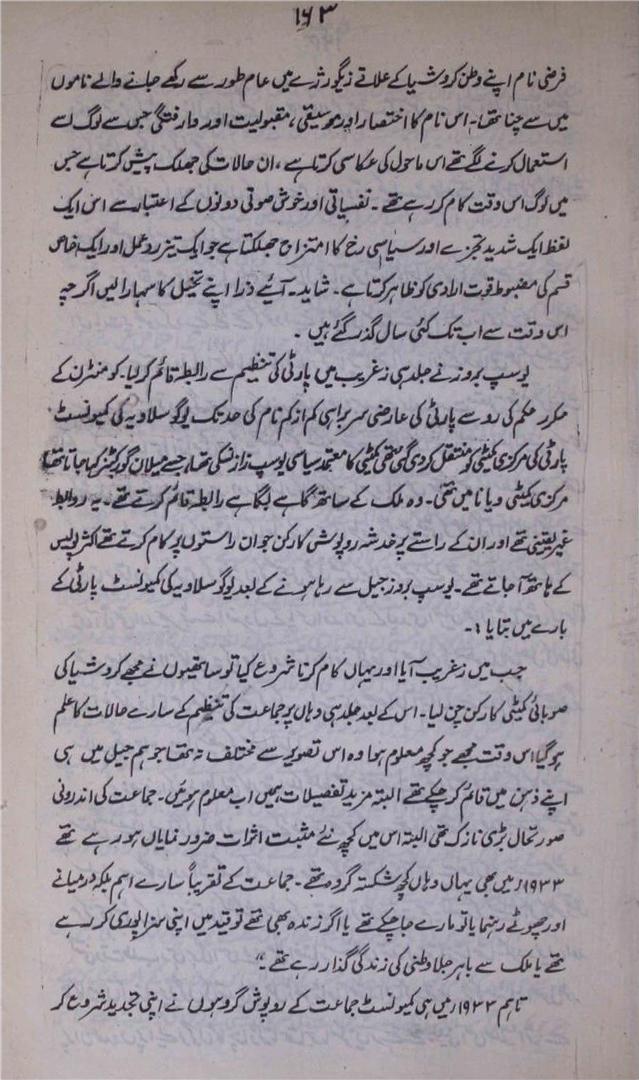 ۱۶۳
فرضی نام اپنے وطن کروشیا کے علاقے زیگورژے میں عام طور سے رکھے جانے والے ناموں
میں سے چنا تھا۔ اس نام کا اختصار اور موسیقی، مقبولیت اور وارفتگی جس سے لوگ اسے
استعمال کرنے لگے تھے اس ماحول کی عکاسی کرتا ہے، ان حالات کی جھلک پیش کرتا ہے جس
میں لوگ اس وقت کام کر رہے تھے۔ نفسیاتی اور خوش صوتی دونوں کے اعتبار سے اس ایک
لفظ ایک شدید تجزیے اور سیاسی رخ کا امتزاج جھلکتا ہے جو ایک تیز رو عمل اور ایک خاص
قسم کی مضبوط قوت ارادی کو ظاہر کرتا ہے۔ شاید۔ آئیے ذرا اپنے تخیل کا سہارا لیں اگرچہ
اس وقت سے اب تک کئی سال گذر گئے ہیں۔
یوسپ بروز نے جلد ہی زغریب میں پارٹی کی تنظیم سے رابطہ قائم کر لیا۔ کومنٹرن کے
مکرر حکم کی رو سے پارٹی کی عارضی سربراہی کم از کم نام کی حد تک یوگوسلاویہ کی کمیونسٹ
پارٹی کی مرکزی کمیٹی کو منتقل کر دی گئی تھی کمیٹی کا معتمد سیاسی یوسپ زازنسکی تھا، جسے میلان گورکیٹز کہا جاتا تھا
مرکزی کمیٹی ویانا میں تھی۔ وہ ملک کے ساتھ گاہے بگاہے رابطہ قائم کرتے تھے۔ یہ روابط
غیر یقینی تھے اور ان کے راستے پر خدشہ روپوشی کارکن جو ان راستوں پر کام کرتے تھے اکثر پولیس
کے ہاتھ آ جاتے تھے۔ یوسپ بروز جیل سے رہا ہونے کے بعد یوگوسلاویہ کی کمیونسٹ پارٹی کے
بارے میں بتایا :۔
جب میں زغریب آیا اور یہاں کام کرنا شروع کیا تو ساتھیوں نے مجھے کروشیا کی
صوبائی کمیٹی کا رکن چن لیا۔ اس کے بعد جلد ہی وہاں پر جماعت کی تنظیم کے سارے حالات کا علم
ہو گیا اس وقت مجھے جو کچھ معلوم ہوا وہ اس تصویر سے مختلف نہ تھا جو ہم جیل میں ہی
اپنے ذہن میں قائم کر چکے تھے البتہ مزید تفصیلات ہمیں اب معلوم ہوئیں۔ جماعت کی اندرونی
صورتحال بڑی نازک تھی البتہ اس میں کچھ نئے مثبت اثرات ضرور نمایاں ہو رہے تھے
۱۹۳۳ء میں بھی یہاں وہاں کچھ شکستہ گروہ تھے۔ جماعت کے تقریباً سارے اہم بلکہ درمیانے
اور چھوٹے رہنما یا تو مارے جا چکے تھے یا اگر زندہ بھی تھے تو قید میں اپنی سزا پوری کر رہے
تھے یا ملک سے باہر جلا وطنی کی زندگی گذار رہے تھے۔“
تاہم ۱۹۳۳ء میں ہی کمیونسٹ جماعت کے روپوش گروہوں نے اپنی تجدید شروع کر